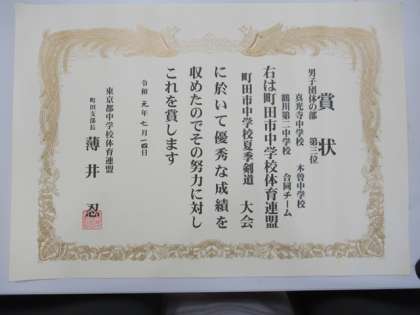 賞状
男子団体の部 第三位
真光寺中学校 木曽中学校
鶴川第二中学校 合同チーム
右は町田市中学校体育連盟
町田市中学校夏季剣道 大会
に於いて優秀な成績を
収めたのでその努力に対し
これを賞します
令和 元年 七月 一四日
東京都中学校体育連盟
町田支部長 薄井 忍